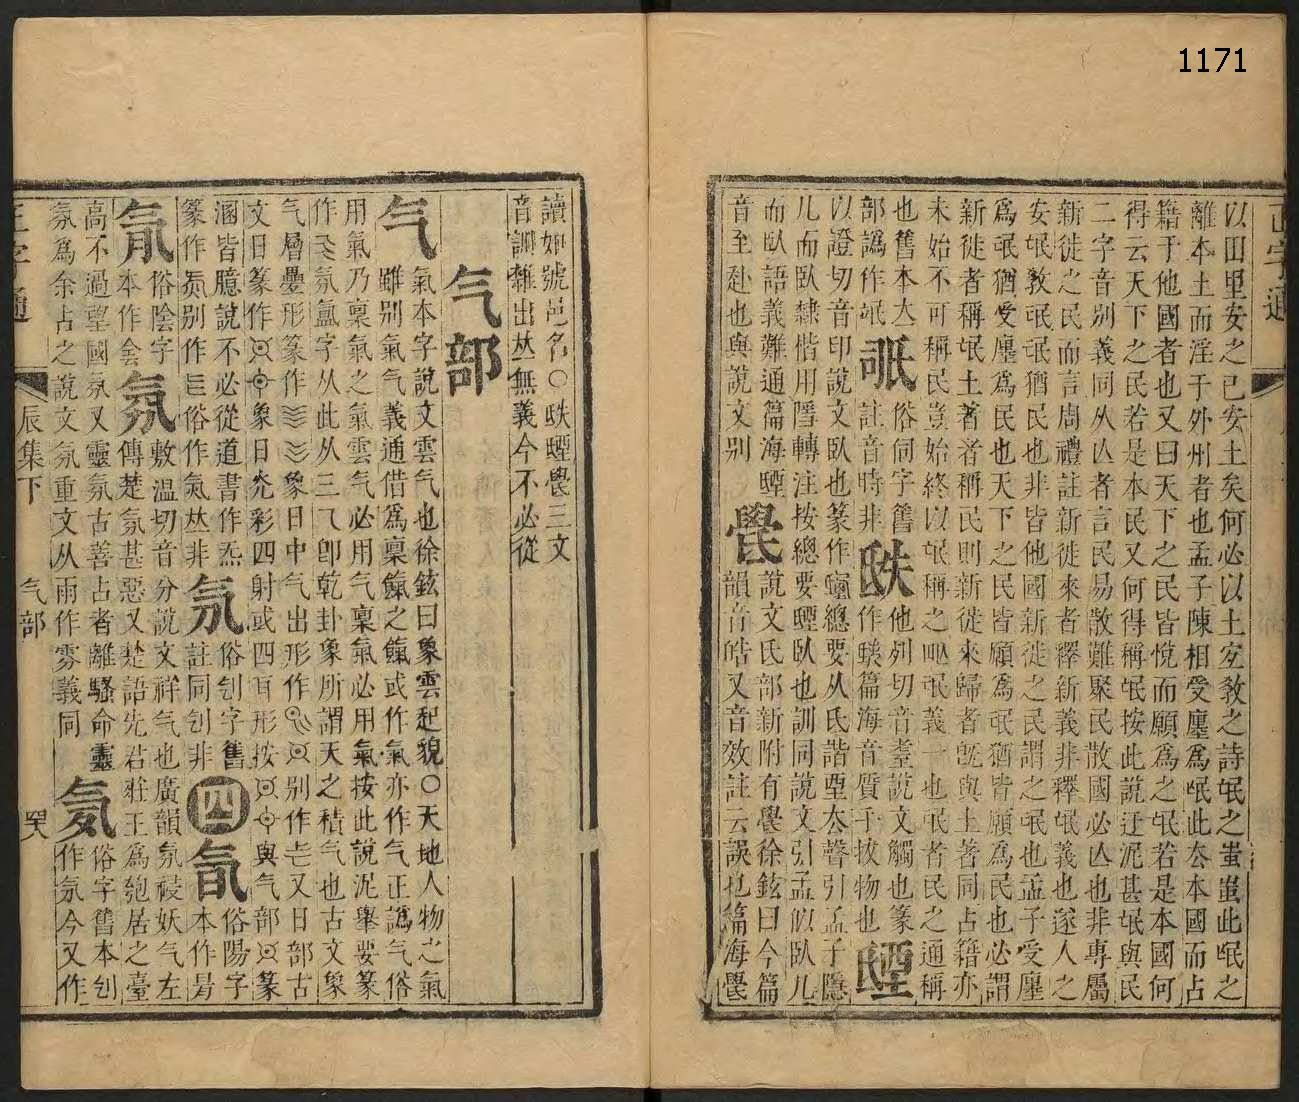 以田里安之已安土矣何必以土宐敎之詩氓之蚩蚩此氓之
離本土而淫于外州者也孟子陳相受廛爲氓此厺本國而占
籍于他國者也又曰天下之民皆悅而願爲之氓若是本國何
得云天下之民若是本民又何得稱氓按此說迂泥甚氓與民
二字音别義同从亾者言民易散難聚民散國必亾也非專屬
新徙之民而言周禮註新徙來者釋新義非釋氓義也遂人之
安氓敎氓氓猶民也非皆他國新徙之民謂之氓也孟子受廛
爲氓猶受廛爲民也天下之民皆願爲氓猶皆願爲民也必謂
新徙者稱氓土著者稱民則新徙來歸者旣與土著同占籍亦
未始不可稱民豈始終以氓稱之氓義一也氓者民之通稱
也舊本厺
部譌作氓
俗伺字舊
註音時非
他列切音耋說文觸也篆
作篇海音質于扻物也
以證切音印說文臥也篆作總要从氏諧垔厺聲引孟子隱
几而臥隸偕用轉注按總要臥也訓同說文引孟㠯臥几
而臥語義難通篇海
音至赴也與說文别
說文氏部新附有徐鉉曰今篇
韻音皓又音效註云誤也篇海
讀如號邑名○三文
音訓雜出㚘無義今不必從
气部
气
氣本字說文雲气也徐鉉曰象雲起貌○天地人物之氣
雖别氣气義通借爲稟餼之餼或作氣亦作气正譌气俗
用氣乃稟氣之氣雲气必用气稟氣必用氣按此說泥舉要篆
作氛氳字从此从三乁卽乾卦象所謂天之積气也古文象
气層疊形篆作象日中气出形作别作又日部古
文日篆作象日光彩四射或四形按與气部篆
溷皆臆說不必從道書作炁
篆作别作俗作氣㚘非
氘
俗刨字舊
註同刨非
四
氜
俗陽字
本作昜
俗陰字
本作侌
氛
敷溫切音分說文祥气也廣韻氛祲妖气左
傳楚氛甚惡又楚語先君莊王爲匏居之臺
高不過望國氛又靈氛古善占者離騷命靈
氛爲余占之說文氛重文从雨作雰義同
俗字舊本刨
作氛今又作
正字通
辰集下
气部